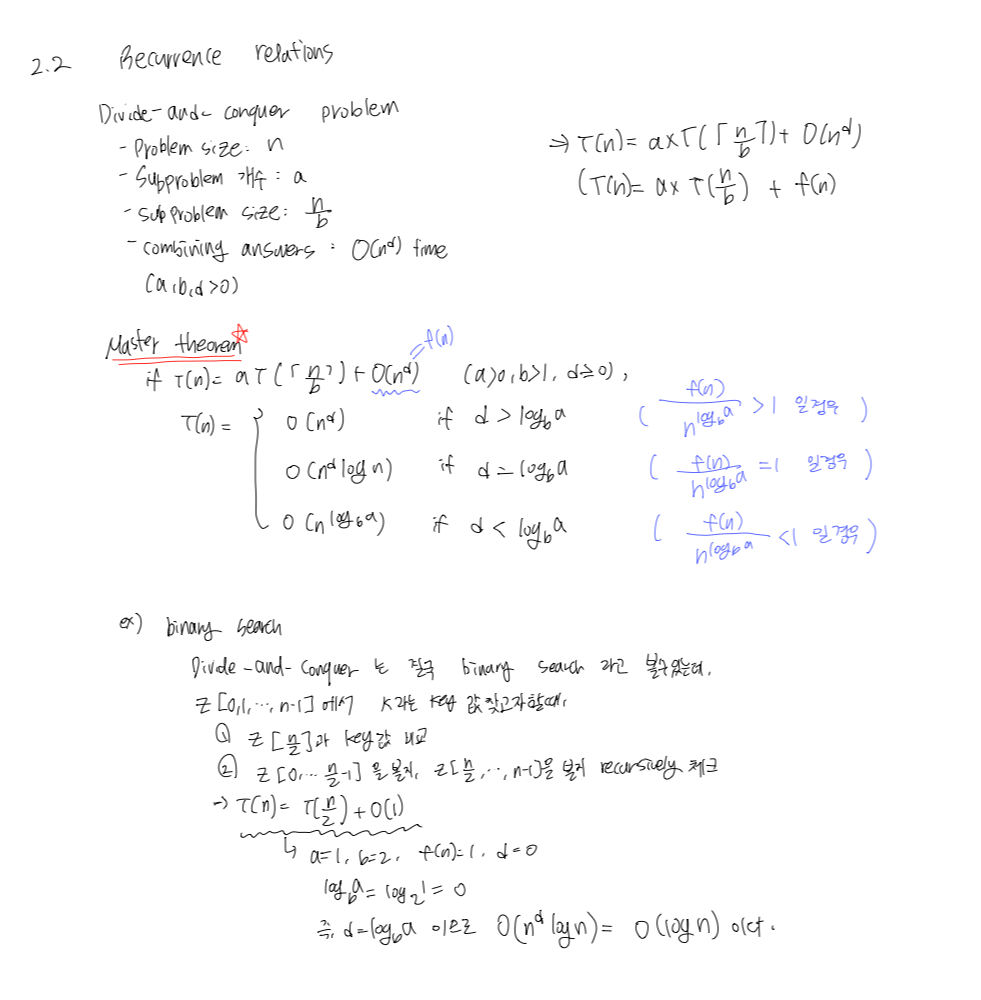 2.2 Recurrence relations
Divide-and-conquer problem
- Problem size: n
- Subproblem 개수 : a
- subproblem size: n/b
- combining answers : O(n^d) time
(a,b,d>0)
→ T(n)= a×T(⌈n/b⌉)+ O(n^d)
(T(n)= a× T(n/b) + f(n)
Master theorem☆
= f(n)
if T(n)= aT(⌈n/b⌉)+O(n^d) (a>0, b>1, d≥0),
T(n) = { O(n^d) if d > log_b a ( f(n)/n^(log_b a) >1 일경우 )
O(n^d log n) if d = log_b a ( f(n)/n^(log_b a) =1 일경우 )
O(n^(log_b a)) if d < log_b a ( f(n)/n^(log_b a) <1 일경우 )
ex) binary search
Divide-and-Conquer 는 결국 binary search 라고 볼수있는데,
Z[0,1,⋯,n-1] 에서 K라는 key 값 찾고자할때,
① Z[n/2]과 key값 비교
② Z[0,⋯ n/2-1] 을 볼지, Z[n/2,⋯,n-1]을 볼지 recursively 체크
→ T(n)= T(n/2)+O(1)
↳ a=1, b=2, f(n)=1, d=0
log_b a = log_2 1 = 0
즉, d=log_b a 이므로 O(n^d log n)= O(log n) 이다.